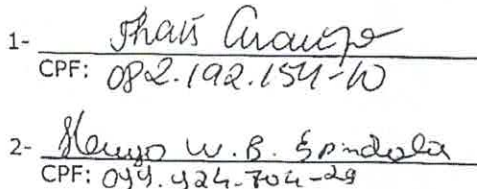 1- Thais Araujo
CPF: 082.192.154-10
2- W. B. Spindola
CPF: 044.424.704-29